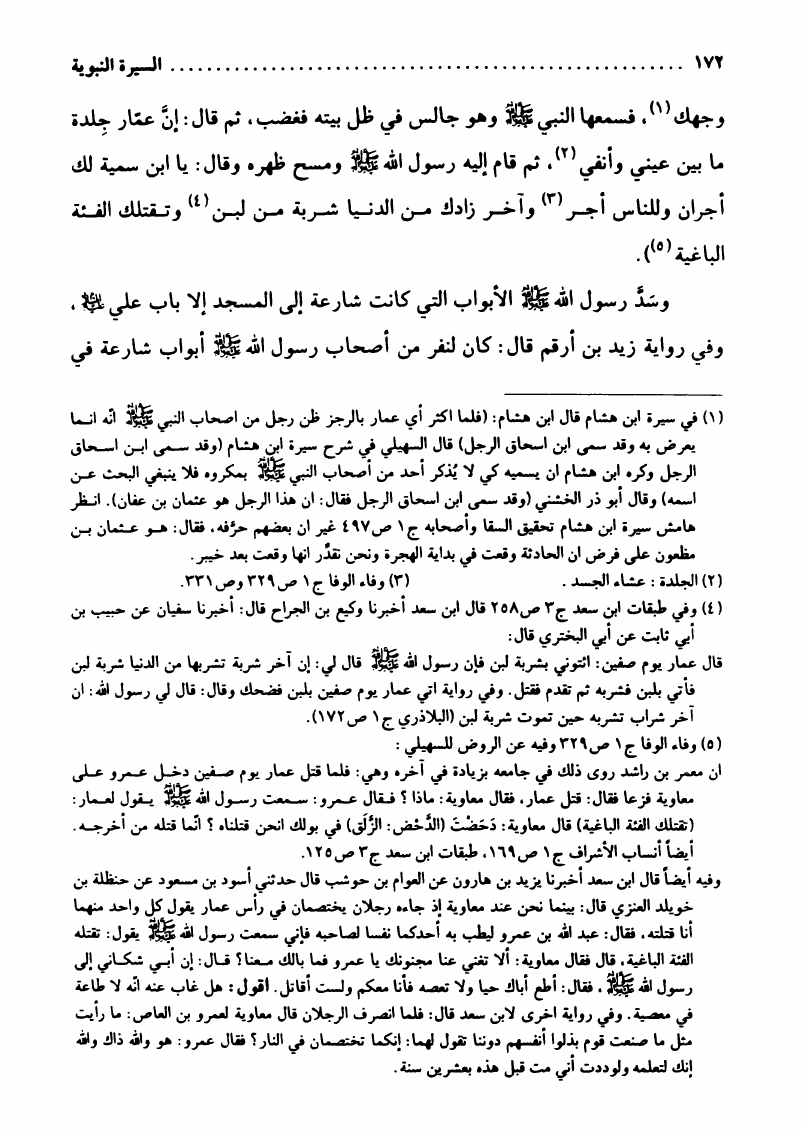 ١٧٢ ........................................................ السيرة النبوية
وجهك(١)، فسمعها النبي ﷺ وهو جالس في ظل بيته فغضب، ثم قال: إنَّ عمّار جِلدة
ما بين عيني وأنفي(٢)، ثم قام إليه رسول الله ﷺ ومسح ظهره وقال: يا ابن سمية لك
أجران وللناس أجـر(٣) وآخـر زادك مـن الدنـيا شـربة مـن لبـن(٤) وتـقتلك الفـئة
الباغية(٥)).
وسَدَّ رسول الله ﷺ الأبواب التي كانت شارعة إلى المسجد إلا باب علي ﷷ،
وفي رواية زيد بن أرقم قال: كان لنفر من أصحاب رسول الله ﷺ أبواب شارعة في
(١) في سيرة ابن هشام قال ابن هشام: (فلما اكثر أي عمار بالرجز ظن رجل من اصحاب النبي ﷺ انّه انـما
يعرض به وقد سمى ابن اسحاق الرجل) قال السهيلي في شرح سيرة ابن هشام (وقد سـمى ابـن اسـحاق
الرجل وكره ابن هشام ان يسميه كي لا يُذكر أحد من أصحاب النبي ﷺ بمكروه فلا ينبغي البحث عـن
اسمه) وقال أبو ذر الخشني (وقد سمى ابن اسحاق الرجل فقال: ان هذا الرجل هو عثمان بن عفان). انـظر
هامش سيرة ابن هشام تحقيق السقا وأصحابه ج١ ص٤٩٧ غير ان بعضهم حرَّفه، فقال: هـو عـثمان بـن
مظعون على فرض ان الحادثة وقعت في بداية الهجرة ونحن نقدَّر انها وقعت بعد خيبر.
(٢) الجلدة : عشاء الجسد . (٣) وفاء الوفا ج١ ص٣٢٩ وص٣٣١.
(٤) وفي طبقات ابن سعد ج٣ ص٢٥٨ قال ابن سعد أخبرنا وكيع بن الجراح قال: أخبرنا سفيان عن حبيب بن
أبي ثابت عن أبي البختري قال:
قال عمار يوم صفين: ائتوني بشربة لبن فإن رسول الله ﷺ قال لي: إن آخر شربة تشربها من الدنيا شربة لبن
فأتي بلبن فشربه ثم تقدم فقتل. وفي رواية اتي عمار يوم صفين بلبن فضحك وقال: قال لي رسول الله: ان
آخر شراب تشربه حين تموت شربة لبن (البلاذري ج١ ص١٧٢).
(٥) وفاء الوفا ج١ ص٣٢٩ وفيه عن الروض للسهيلي :
ان معمر بن راشد روى ذلك في جامعه بزيادة في آخره وهي: فلما قتل عمار يوم صـفين دخـل عـمرو عـلى
معاوية فزعا فقال: قتل عمار، فقال معاوية: ماذا ؟ فـقال عـمرو: سـمعت رسـول الله ﷺ يـقول لعـمار:
(تقتلك الفئة الباغية) قال معاوية: دَحَضْتَ (الدَّحْض: الزَّلَق) في بولك انحن قتلناه ؟ انّما قتله من أخرجـه.
أيضاً أنساب الأشراف ج١ ص١٦٩، طبقات ابن سعد ج٣ ص١٢٥.
وفيه أيضاً قال ابن سعد أخبرنا يزيد بن هارون عن العوام بن حوشب قال حدثني أسود بن مسعود عن حنظلة بن
خويلد العنزي قال: بينما نحن عند معاوية إذ جاءه رجلان يختصمان في رأس عمار يقول كل واحد منهما
أنا قتلته، فقال: عبد الله بن عمرو ليطب به أحدكما نفسا لصاحبه فإني سمعت رسول الله ﷺ يقول: تقتله
الفئة الباغية، قال فقال معاوية: ألا تغني عنا مجنونك يا عمرو فما بالك مـعنا؟ قـال: إن أبـي شكـاني إلى
رسول الله ﷺ ، فقال: أطع أباك حيا ولا تعصه فأنا معكم ولست أقاتل. أقول: هل غاب عنه انّه لا طاعة
في معصية. وفي رواية اخرى لابن سعد قال: فلما انصرف الرجلان قال معاوية لعمرو بن العاص: ما رأيت
مثل ما صنعت قوم بذلوا أنفسهم دوننا تقول لهما: إنكما تختصمان في النار؟ فقال عمرو: هو والله ذاك والله
إنك لتعلمه ولوددت أني مت قبل هذه بعشرين سنة.